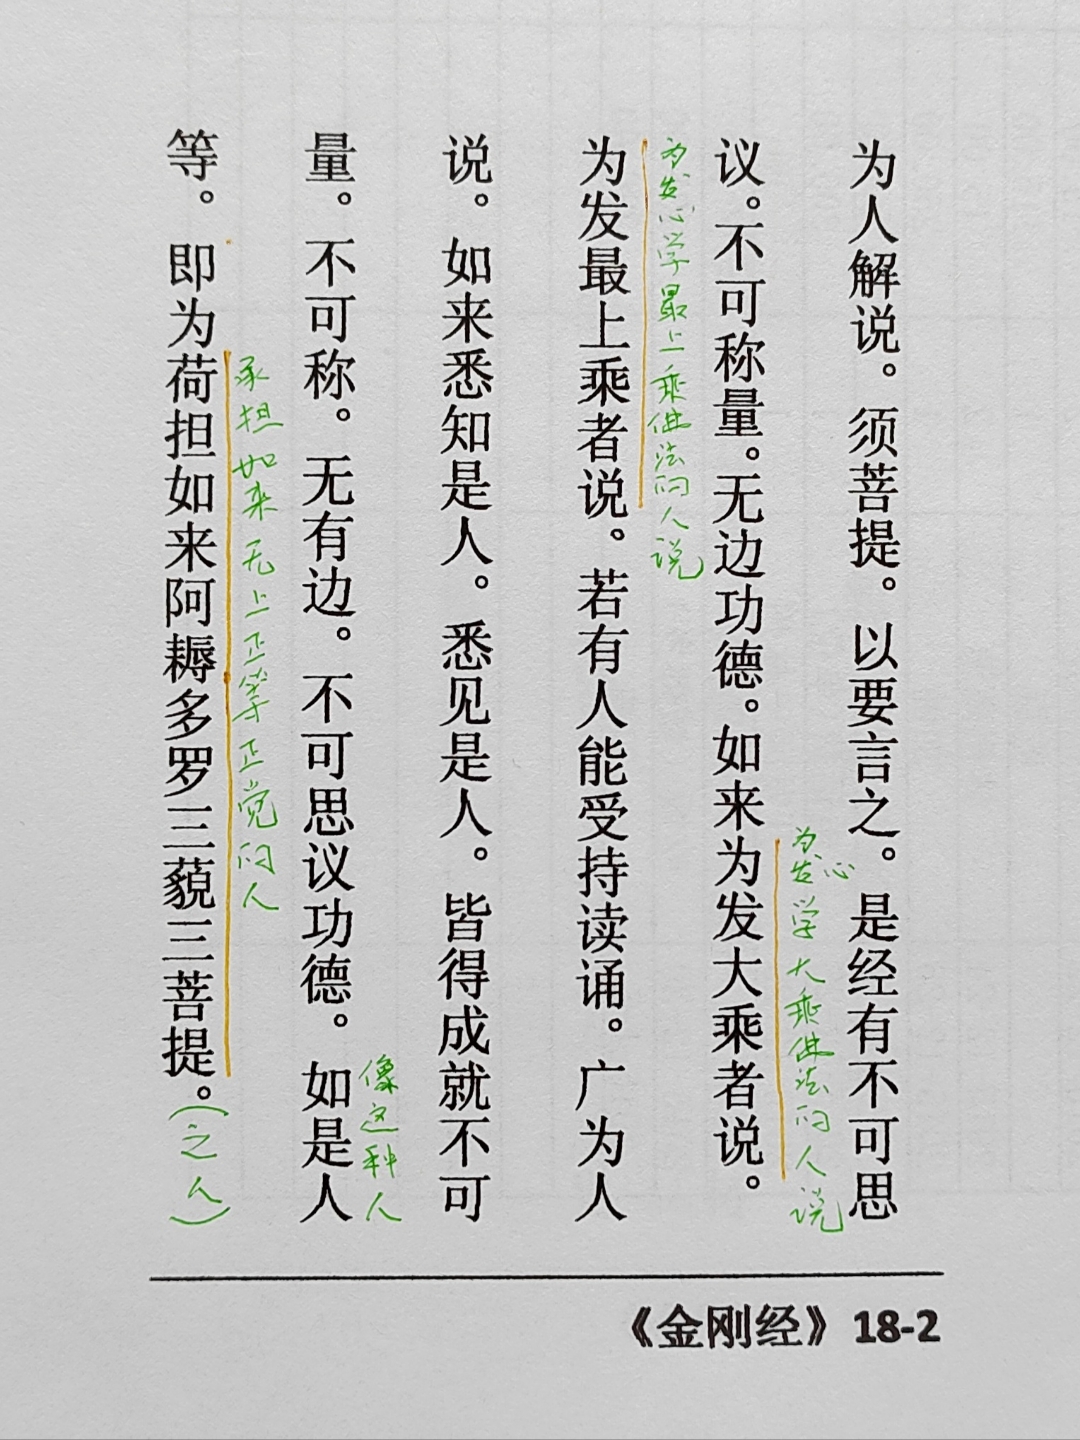 为人解说。须菩提。以要言之。是经有不可思
为发心学大乘佛法的人说
议。不可称量。无边功德。如来为发大乘者说。
为发心学最上乘佛法的人说
为发最上乘者说。若有人能受持读诵。广为人
说。如来悉知是人。悉见是人。皆得成就不可
像这种人
量。不可称。无有边。不可思议功德。如是人
承担如来无上正等正觉的人
等。即为荷担如来阿耨多罗三藐三菩提。(之人)
《金刚经》18-2